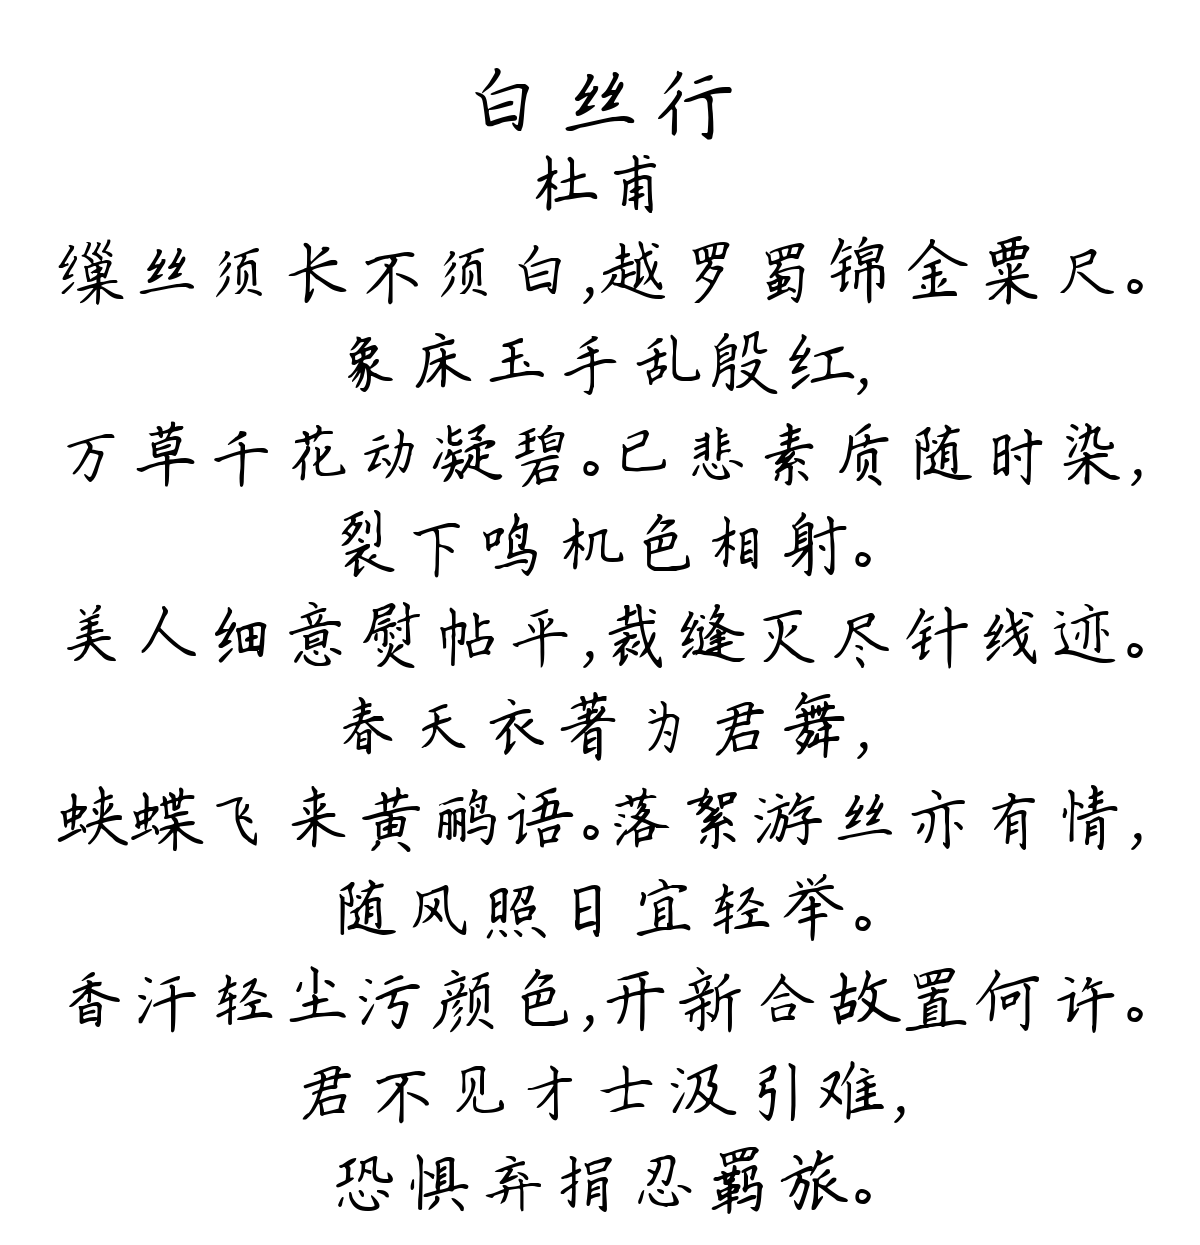 白丝行
杜甫
缫丝须长不须白,越罗蜀锦金粟尺。
象床玉手乱殷红,
万草千花动凝碧。已悲素质随时染,
裂下鸣机色相射。
美人细意熨帖平,裁缝灭尽针线迹。
春天衣著为君舞,
蛱蝶飞来黄鹂语。落絮游丝亦有情,
随风照日宜轻举。
香汗轻尘污颜色,开新合故置何许。
君不见才士汲引难,
恐惧弃捐忍羁旅。